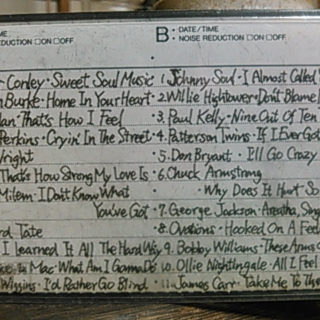 ME
B • DATE/TIME
REDUCTION □ON □OFF
• NOISE REDUCTION □ON □OFF
Conley • Sweet Soul Music
1. Johnny Soul • I Almost Called
Burke • Home In Your Heart
2. Willie Hightower • Don't Blame
That's How I Feel
3. Paul Kelly • Nine Out Of Ten
Perkins • Cryin' In The Street
4. Patterson Twins • If I Ever Got
Wright
5. Don Bryant • I'll Go Crazy
That's How Strong My Love Is
6. Chuck Armstrong
Milem • I Don't Know What
Why Does It Hurt So
You've Got
7. George Jackson • Aretha, Sing
Tate
8. Ovations • Hooked On A Feel
I Learned It All The Hard Way
9. Bobby Williams • These Arms
Mac • What Am I Gonna Do
10. Ollie Nightingale • All I Feel
Wiggins • I'd Rather Go Blind
11. James Carr • Take Me To The